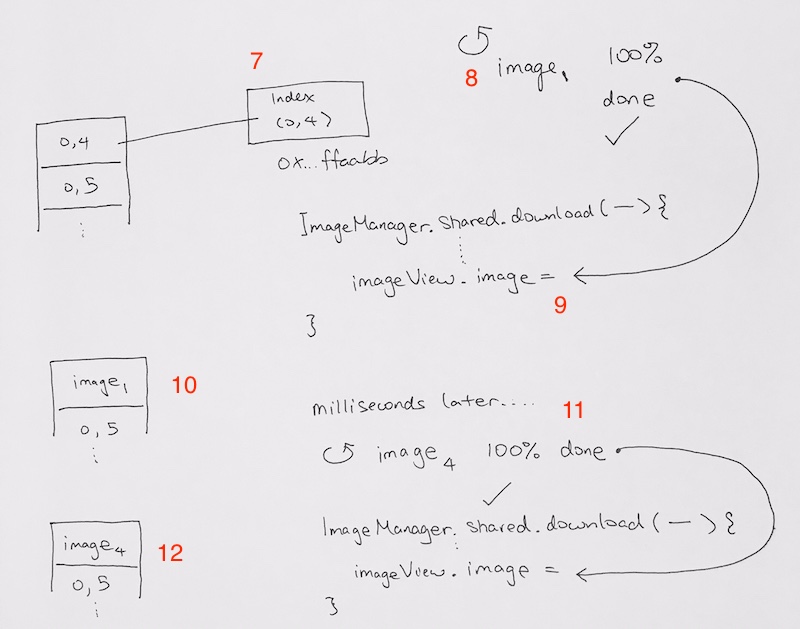 7
Index
(0,4)
0x...ffaabb
0,4
0,5
8
image1
100%
done
ImageManager.shared.download(—){
imageView.image =
9
}
10
image1
0,5
milliseconds later....
11
image4 100% done
ImageManager.shared.download(—){
imageView.image =
}
12
image4
0,5